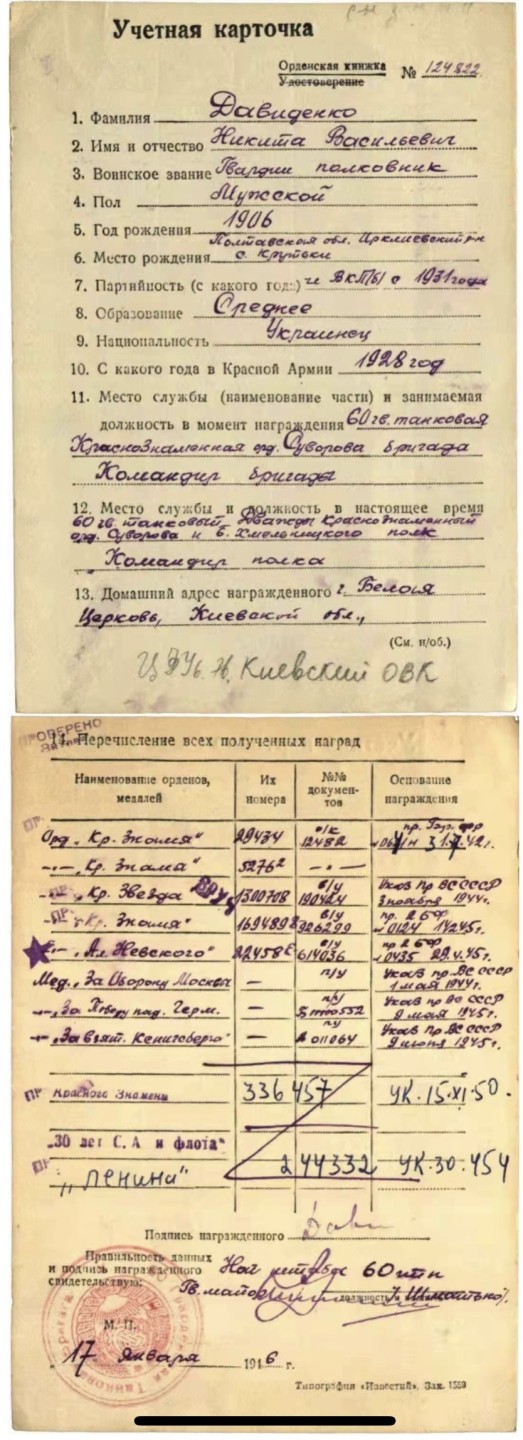 Учетная карточка
Орденская книжка
Удостоверение № 124822
1. Фамилия Давиденко
2. Имя и отчество Никита Васильевич
3. Воинское звание Гвардии полковник
4. Пол Мужской
5. Год рождения 1906
Полтавская обл. Ирклиевский р-н
6. Место рождения с. Крутьки
7. Партийность (с какого года) чл ВКП/б/ с 1931 года
8. Образование Среднее
9. Национальность Украинец
10. С какого года в Красной Армии 1928 год
11. Место службы (наименование части) и занимаемая
должность в момент награждения 60 гв. танковая
Краснознаменная орд. Суворова бригада
Командир бригады
12. Место службы и должность в настоящее время
60 гв. танковый Дважды Краснознаменный
орд. Суворова и Б. Хмельницкого полк
Командир полка
13. Домашний адрес награжденного г. Белая
Церковь, Киевской обл.,
(См. н/об.)
Киевский ОВК
ПРОВЕРЕНО
14. Перечисление всех полученных наград
Наименование орденов, медалей Их номера №№ документов Основание награждения
Орд. „Кр. Знамя" 29434 о/к 12482
-"- „Кр. Знамя" 5276² -"-
ПР -"- „Кр. Звезда" 1300708 в/у 190424 Указ Пр ВС СССР 3 ноября 1944г.
ПР -"- „Кр. Знамя" 169489 в/у 926299 пр. 2 БФ № 0124 14.2.45г.
-"- „Ал. Невского" 22458 в/у 614036 пр. 2 БФ № 0435 29.4.45г.
Мед. „За Оборону Москвы — п/у Указ пр. ВС СССР 1 мая 1944г.
-"- „За Победу над. Герм. — п/у Указ пр ВС СССР 9 мая 1945г.
-"- „За взят. Кенигсберга" — п/у А 011064 Указ Пр ВС СССР 9 июня 1945г.
ПР Красного Знамени 336457 УК. 15.XI.50.
„30 лет С. А и флота"
ПР „Ленина" 244332 УК. 30.4 54
Подпись награжденного
Правильность данных
и подпись награжденного
свидетельствую: Нач штаба 60 тп
Гв. майор
М. П.
17 Января 1946 г.
Типография «Известий». Зак. 1559